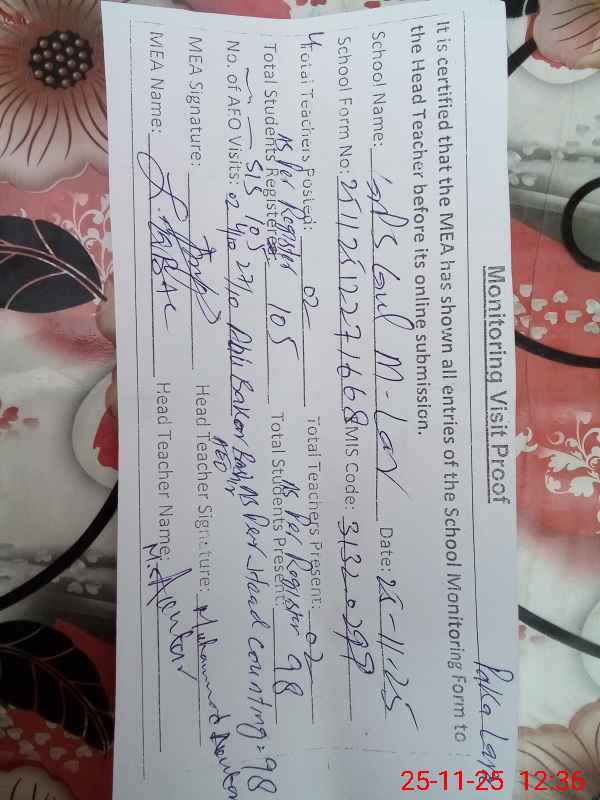 Monitoring Visit Proof
Paka Lara
It is certified that the MEA has shown all entries of the School Monitoring Form to
the Head Teacher before its online submission.
School Name: GPS Gul M-Lar Date: 25-11-25
School Form No: MIS Code:
Total Teachers Posted: 02 Total Teachers Present: 02
As Per Register As Per Register
Total Students Registered: 105 Total Students Present: 98
SIS 105 As Per Head counting = 98
No. of AFO Visits: 02
AEO
MEA Signature: Head Teacher Signature: Muhammad
MEA Name: Head Teacher Name:
25-11-25 12:36